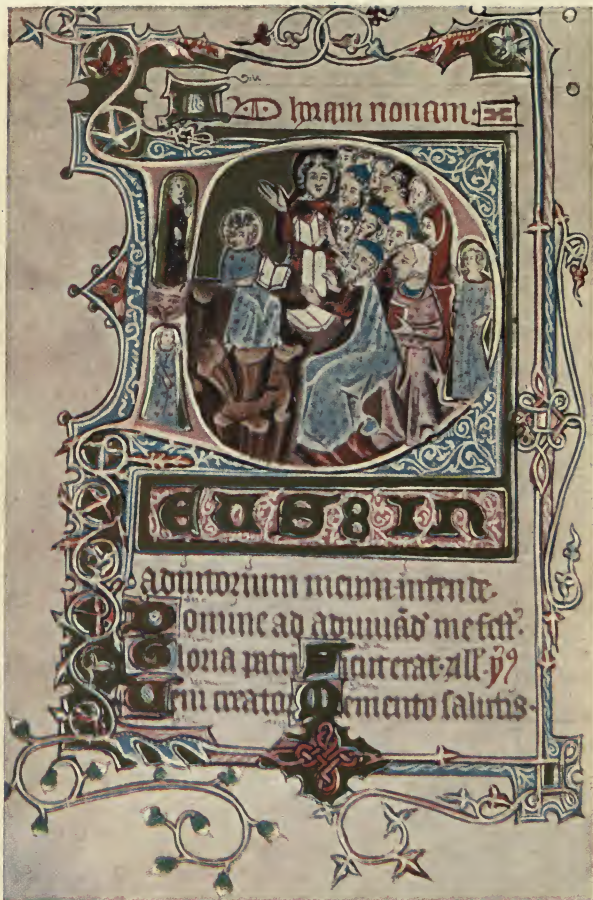 AD horam nonam.
DEUS IN
adiutorium meum intende.
Domine ad adiuuād' me fest'.
Gloria patri Sicut erat. All'. ỹ9
Ueni creator Memento salutis.